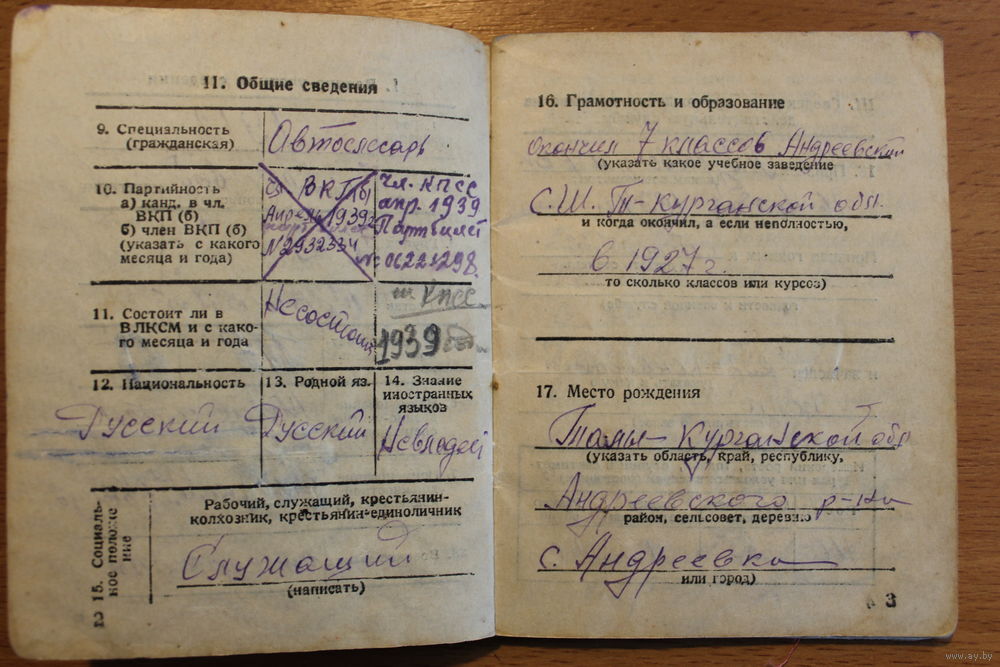 11. Общие сведения
9. Специальность
(гражданская)
Автослесарь
10. Партийность
а) канд. в чл.
ВКП (б)
б) член ВКП (б)
(указать с какого
месяца и года)
ВКП(б)
Апрель 1939
№ 2932334
Чл. КПСС
апр. 1939
Партбилет
№ 06221298.
11. Состоит ли в
ВЛКСМ и с како-
го месяца и года
Несостоит
чл КПСС
1939
12. Национальность
Русский
13. Родной яз.
Русский
14. Знание
иностранных
языков
Невладеет
15. Социаль-
ное положе
ние
Рабочий, служащий, крестьянин-
колхозник, крестьянин-единоличник
Служащий
(написать)
16. Грамотность и образование
окончил 7 классов Андреевской
(указать какое учебное заведение
С.Ш. Т-Курганской обл.
и когда окончил, а если неполностью,
в 1927 г.
то сколько классов или курсов)
17. Место рождения
Талы-Курганской обл
(указать область, край, республику,
Андреевского р-на
район, сельсовет, деревню
с. Андреевка
или город)
3
www.ay.by